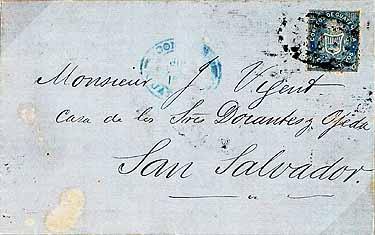 Monsieur J. Vigent
Casa de los Sres Dorantes y Ojeda
San Salvador.